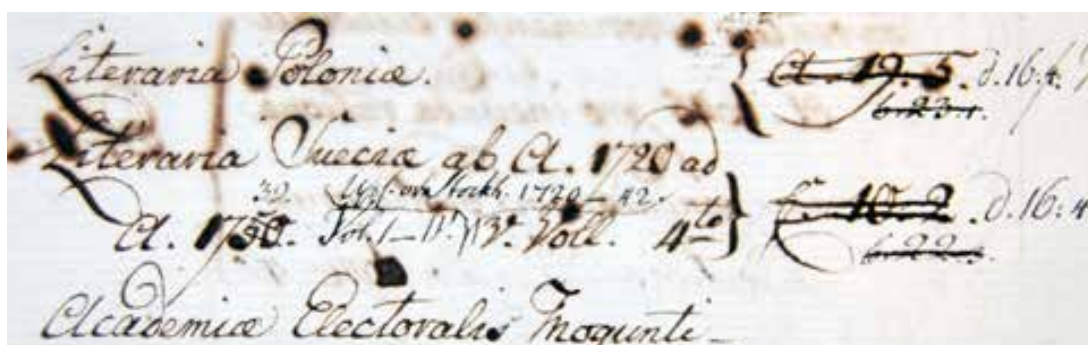 Literaria Poloniæ. } A. 19. 5. d. 16. 4.
b. 23. 1.
Literaria Sueciæ ab A. 1720 ad
39. Ups. och Stockh. 1720–42.
A. 1750. Vol. 1–IV. 3. Voll. 4to } 10. 2. d. 16: 4
b. 22.
Academiæ Electoralis Mogunti-